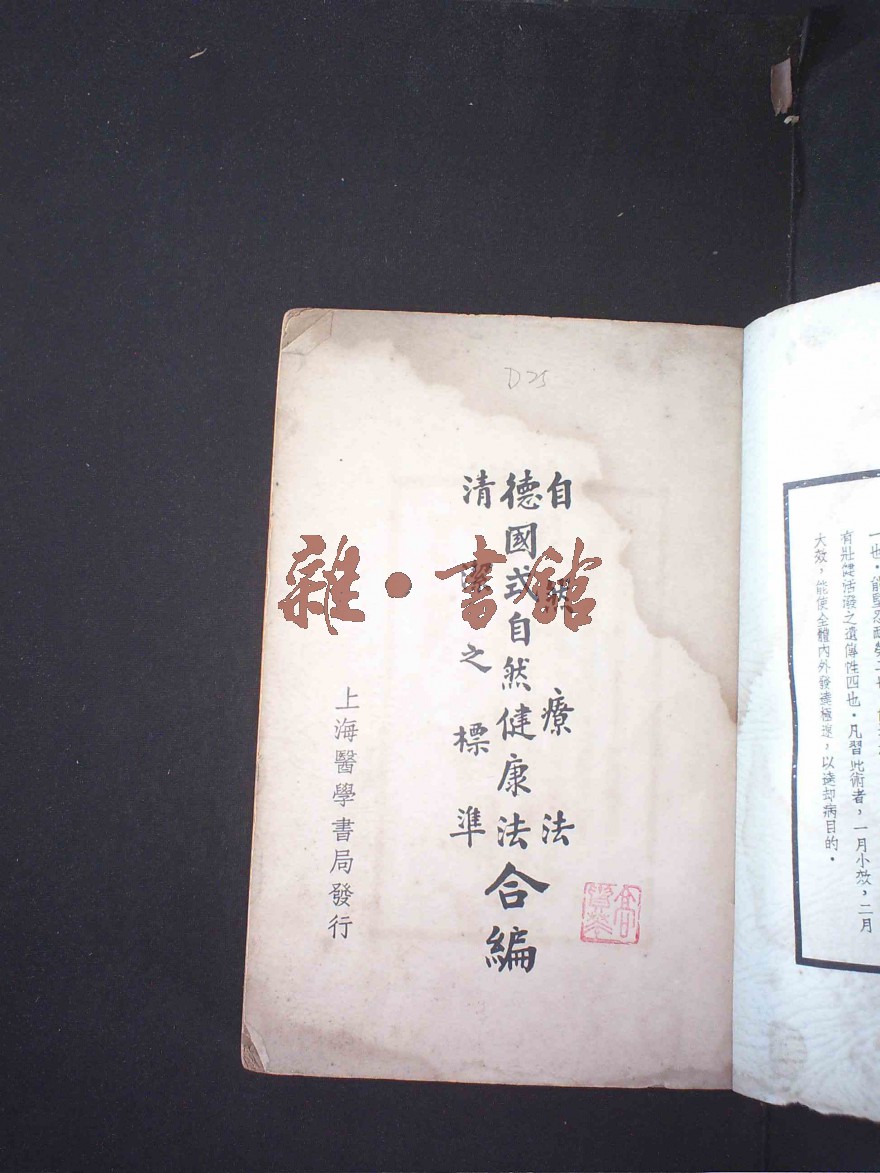 有壯健活潑之遺傳性四也．凡習此術者，一月小效，二月
大效，能使全體內外發達極速，以達却病目的．
D25
自然療法
德國式自然健康法合編
清潔之標準
上海醫學書局發行
雜·書館